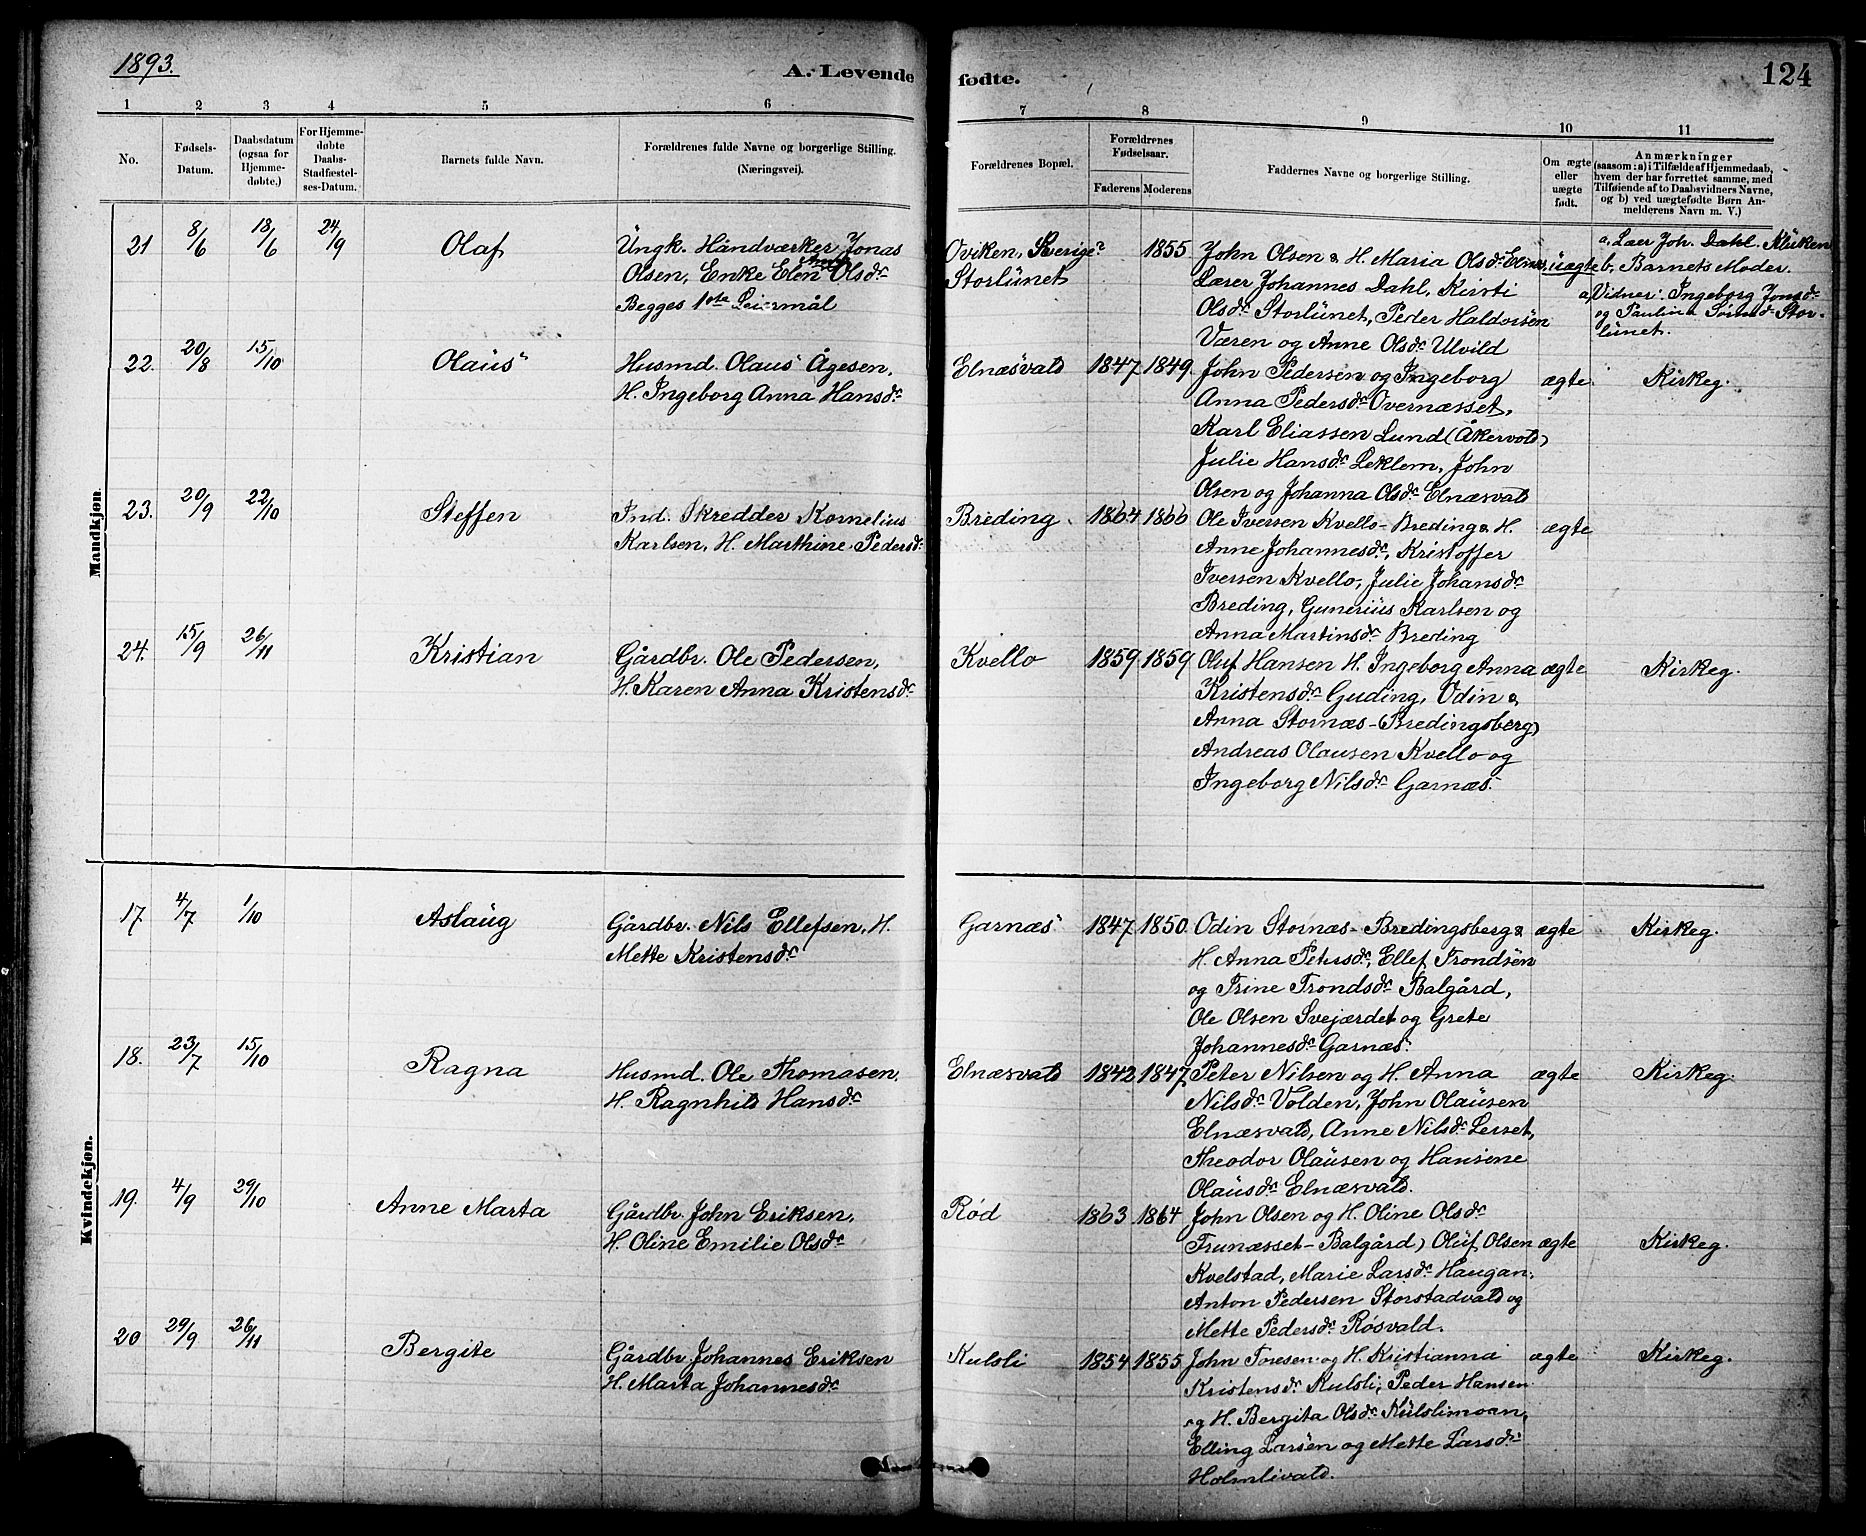 1893.
A. Levende fødte.
124
1 2 3 4 5 6 7 8 9 10 11
No.
Fødsels-
Datum.
Daabsdatum
(ogsaa for
Hjemme-
døbte.)
For Hjemme-
døbte
Daabs-
Stadfæstel-
ses-Datum.
Barnets fulde Navn.
Forældrenes fulde Navne og borgerlige Stilling.
(Næringsvei).
Forældrenes Bopæl.
Forældrenes
Fødselsaar.
Faderens Moderens
Faddernes Navne og borgerlige Stilling.
Om ægte
eller
uægte
født.
Anmærkninger
(saasom: a) i Tilfælde af Hjemmedaab,
hvem der har forrettet samme, med
Tilføiende af to Daabsvidners Navne,
og b) ved uægtefødte Børn An-
melderens Navn m. V.)
Mandkjøn.
21 8/6 18/6 24/9 Olaf
Ungk. Håndværker Jonas
Olsen, Enke Elen Olsdr
Begges 1ste Leiermål
Oviken, Sverige
Storlunet
1855
John Olsen & H. Maria Olsdr Elnæs,
Lærer Johannes Dahl, Kirsti
Olsdr Storlunet, Peder Haldorsen
Væren og Anne Olsdr Ulvild
uægte
a, Lær Joh. Dahl. Kluken
b, Barnets Moder.
a, Vidner: Ingeborg Jonsdr
og Paulina Storlunet.
22. 20/8 15/10 Olaus
Husmd. Olaus Ågesen,
H. Ingeborg Anna Hansdr
Elnæsvald 1847 1849.
John Pedersen og Ingeborg
Anna Pedersdr Overnæsset,
Karl Eliassen Lund (Åkervold)
Julie Hansdr Leklem, John
Olsen og Johanna Olsdr Elnæsvald
ægte. Kirkeg.
23. 20/9 22/10 Steffen
Ind. Skredder Kornelius
Karlsen, H. Marthine Pedersdr
Breding. 1864 1866
Ole Iversen Kvello-Breding & H.
Anne Johannesdr, Kristoffer
Iversen Kvello, Julie Johansdr
Breding, Gunerius Karlsen og
Anna Martinsdr Breding
ægte
24. 15/9 26/11 Kristian
Gårdbr. Ole Pedersen,
H. Karen Anna Kristensdr
Kvello 1859 1859
Oluf Hansen H. Ingeborg Anna
Kristensdr Guding, Odin &
Anna Stornæs-(Bredingsberg)
Andreas Olausen Kvello og
Ingeborg Nilsdr Garnæs.
ægte Kirkeg.
Kvindekjøn.
17. 4/7 1/10 Aslaug
Gårdbr. Nils Ellefsen, H.
Mette Kristensdr
Garnæs 1847 1850.
Odin Stornæs-Bredingsberg &
H. Anna Petersdr, Ellef Trondsen
og Trine Trondsdr Balgård,
Ole Olsen Svejærdet og Grete
Johannesdr Garnæs.
ægte Kirkeg.
18. 23/7 15/10 Ragna
Husmd. Ole Thomasen.
H. Ragnhild Hansdr
Elnæsvald 1842 1847
Peter Nilsen og H. Anna
Nilsdr Volden, John Olausen
Elnæsvald, Anne Nilsdr Lerset,
Theodor Olausen og Hansine
Olausdr Elnæsvald.
ægte Kirkeg.
19. 4/9 29/10 Anne Marta
Gårdbr. John Eriksen,
H. Oline Emilie Olsdr
Rød 1863 1864
John Olsen og H. Oline Olsdr
Trunæsset-Balgård) Oluf Olsen
Kvelstad, Marie Larsdr Haugan,
Anton Pedersen Storstadvald og
Mette Pedersdr Røsvald.
ægte Kirkeg.
20 29/9 26/11 Bergite
Gårdbr. Johannes Eriksen
H. Marta Johannesdr
Kulsli 1854 1855
John Toresen og H. Kristianna
Kristensdr Kulsli, Peder Hansen
og H. Bergita Olsdr Kulslimoan,
Elling Larsen og Mette Larsdr
Holmlivald.
ægte Kirkeg.